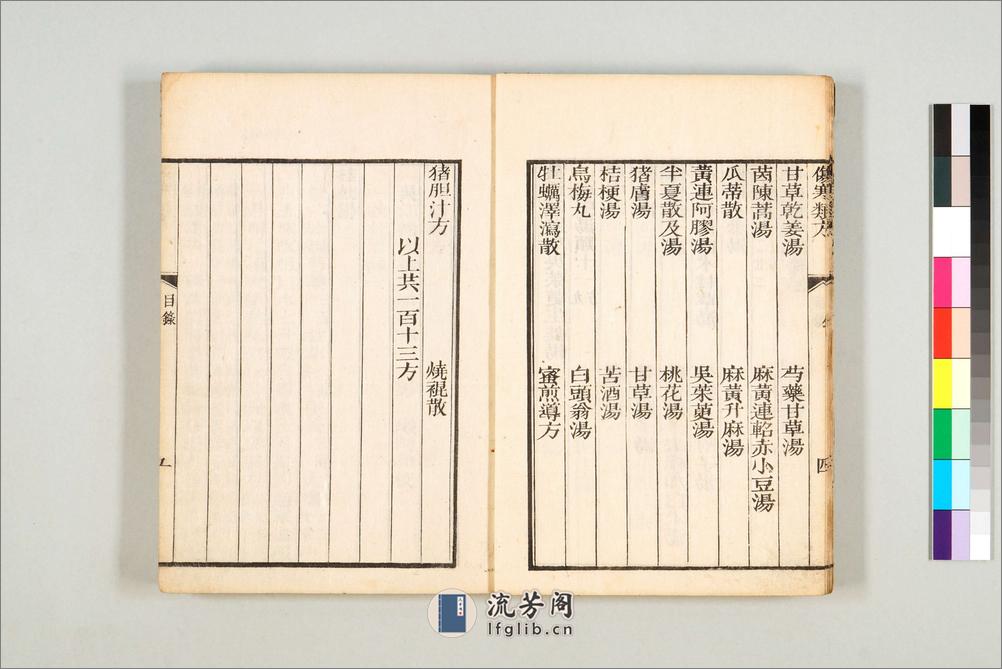 傷寒類方
四
甘草乾姜湯 芍藥甘草湯
茵陳蒿湯 麻黃連軺赤小豆湯
瓜蒂散 麻黃升麻湯
黃連阿膠湯 吳茱萸湯
半夏散及湯 桃花湯
猪膚湯 甘草湯
桔梗湯 苦酒湯
烏梅丸 白頭翁湯
牡蠣澤瀉散 蜜煎導方
猪胆汁方 燒裩散
以上共一百十三方
目錄
流芳阁
lfglib.cn